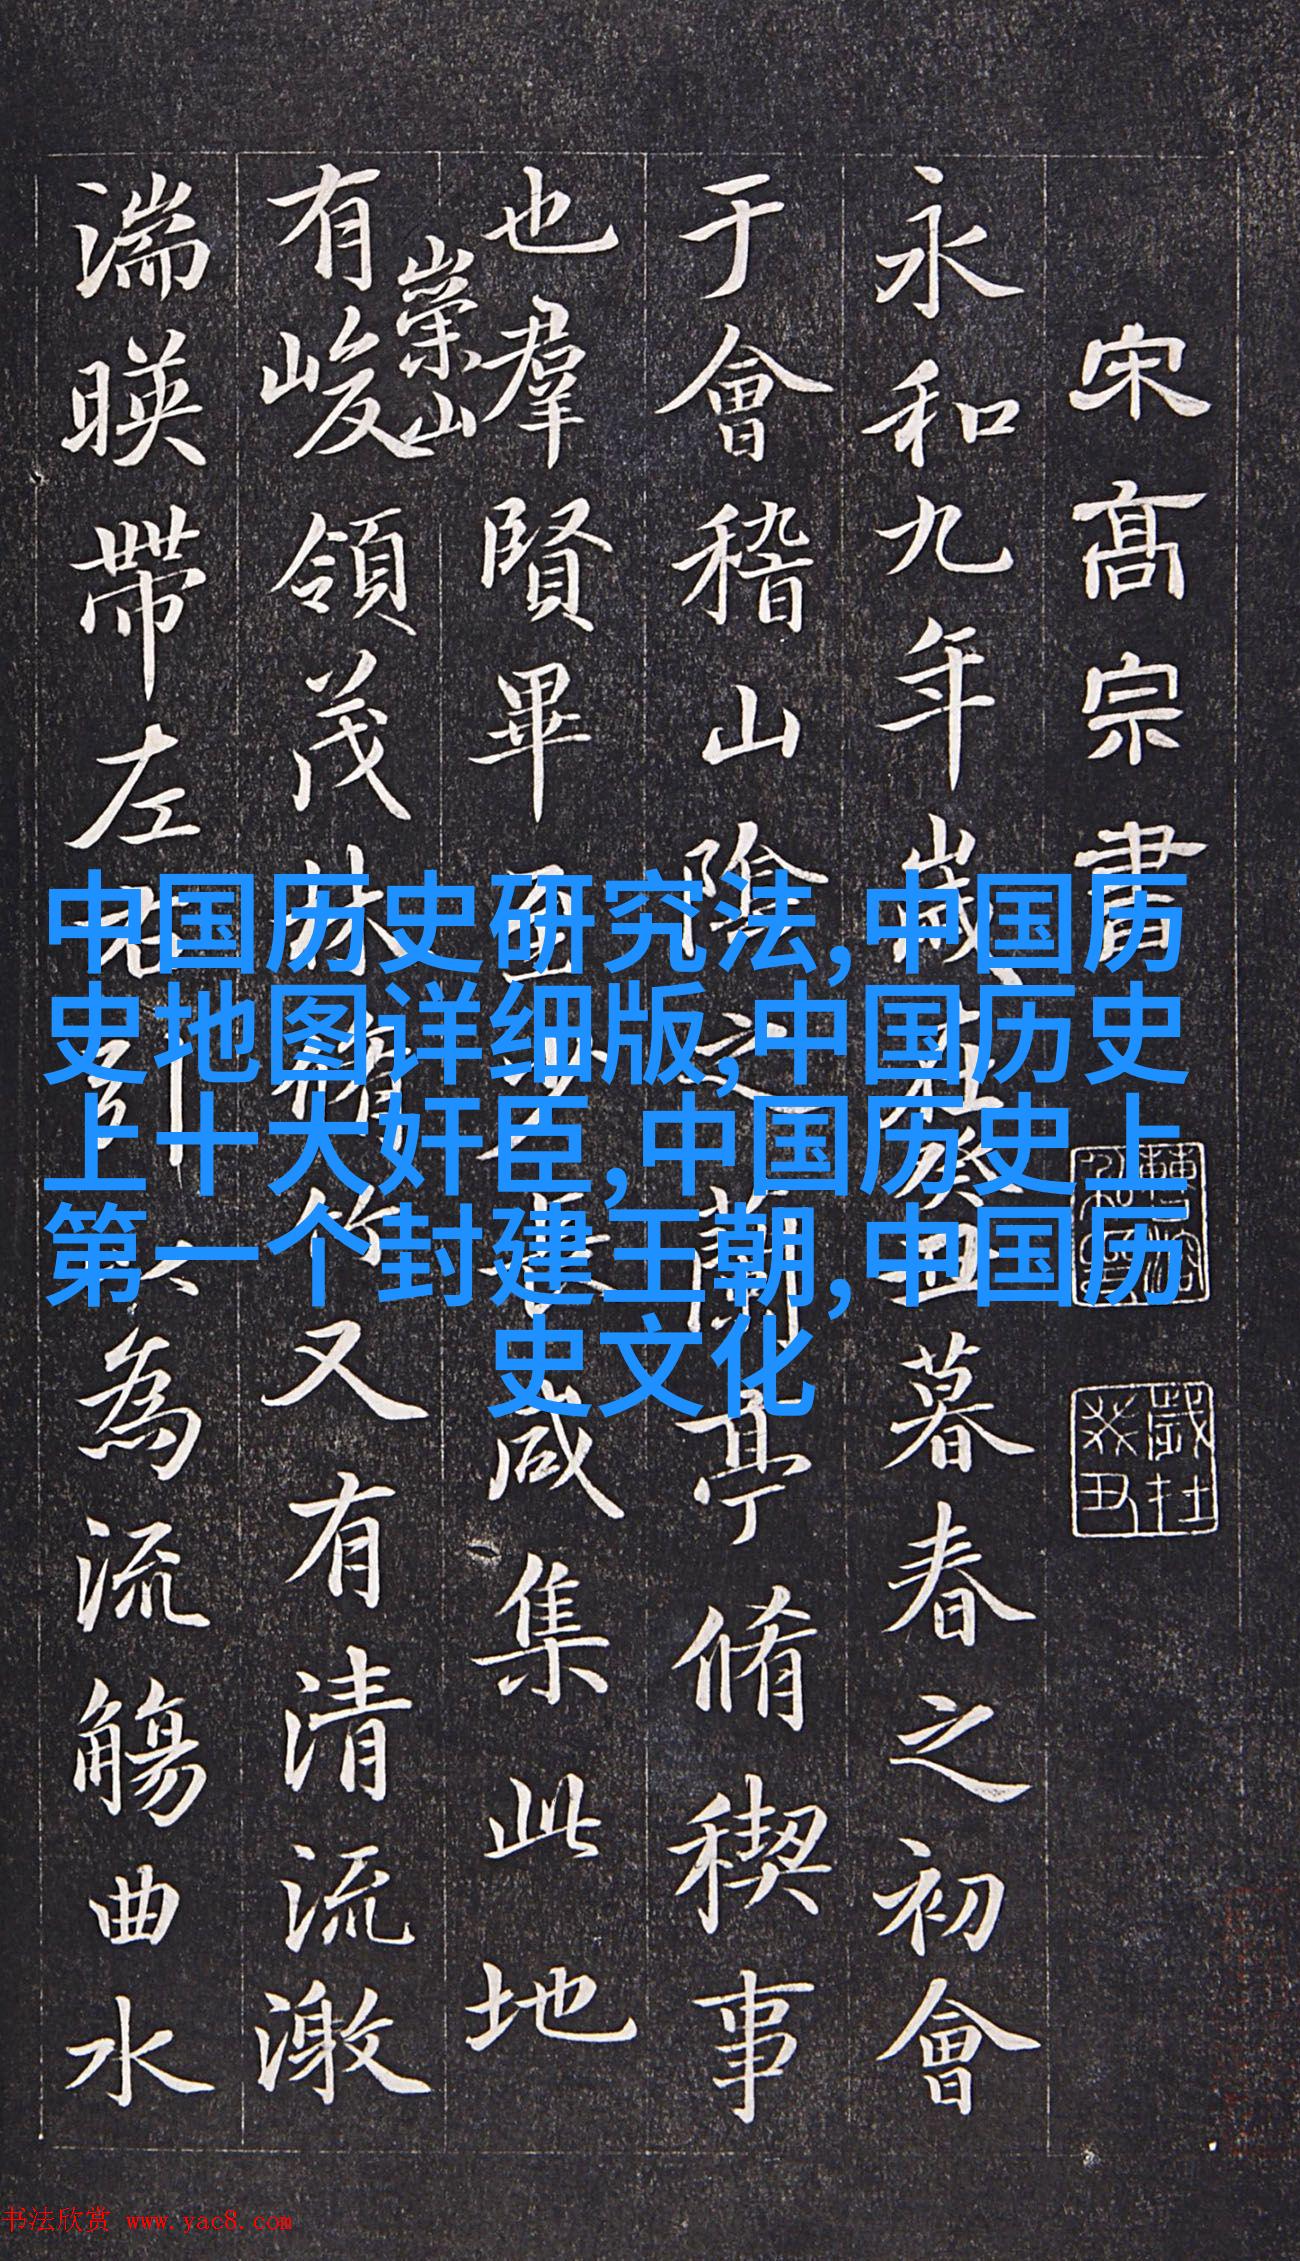 宋髙宗書
永和九年歲在癸丑暮春之初會
于會稽山陰之蘭亭脩稧事
也羣賢畢至少長咸集此地
崇山
有峻領茂林脩竹又有清流激
湍暎帶左右引以為流觴曲水
中国历史研究法,中国历
史地图详细版,中国历史
上十大奸臣,中国历史上
第一个封建王朝,中国历
史文化
书法欣赏 www.yac8.com